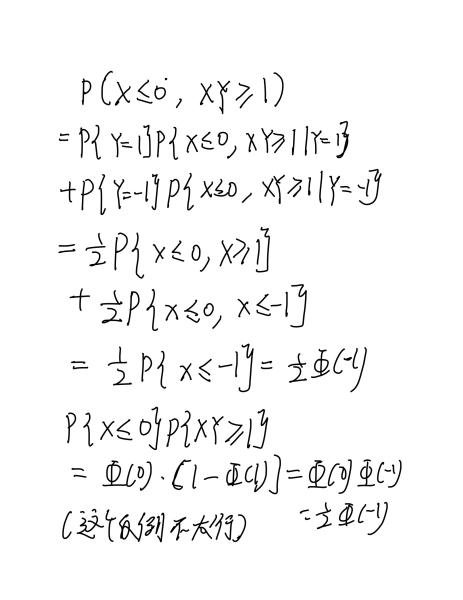 P(X≤0, XY≥1)
=P{Y=1}P{X≤0, XY≥1|Y=1}
+P{Y=-1}P{X≤0, XY≥1|Y=-1}
=½P{X≤0, X≥1}
+½P{X≤0, X≤-1}
=½P{X≤-1}=½Φ(-1)
P{X≤0}P{XY≥1}
=Φ(0)·[1-Φ(1)]=Φ(0)Φ(-1)
=½Φ(-1)
(这个反例不太行)